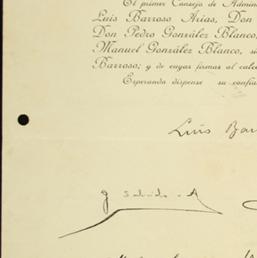 El primer Consejo de Admin
Luis Barroso Arias, Don
Don Pedro González Blanco,
Manuel González Blanco, su
Barroso; y de cuyas firmas al calc
Esperando dispense su confia
Luis Bar